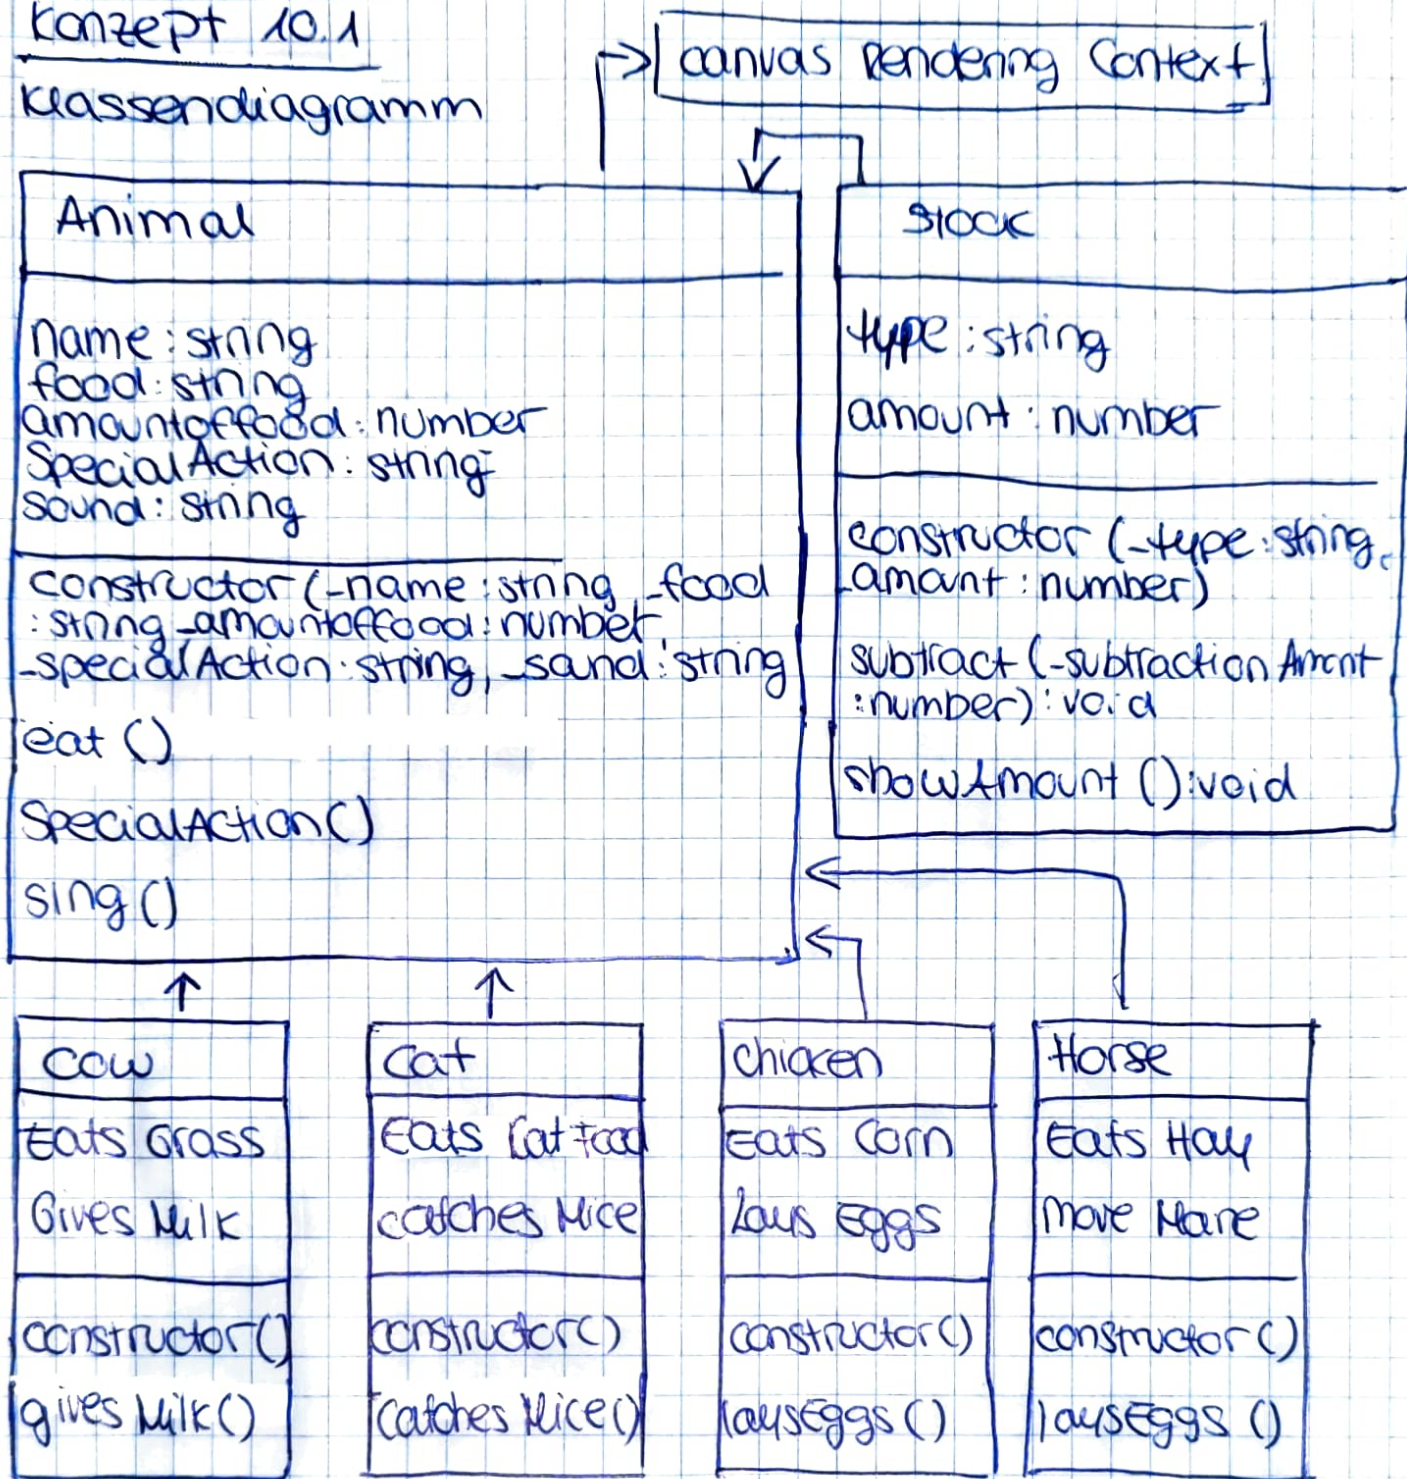 Konzept 10.1
Klassendiagramm
Canvas Rendering Context
Animal
name : string
food : string
amountoffood : number
SpecialAction : string
sound : string
constructor (_name : string, _food
: string _amountoffood : number,
_specialAction : string, _sound : string
eat ()
SpecialAction ()
sing ()
Stock
type : string
amount : number
constructor (_type : string,
_amount : number)
subtract (_subtraction Amount
: number) : void
showAmount () : void
Cow
Eats Grass
Gives Milk
constructor ()
gives Milk ()
Cat
Eats Cat Food
catches Mice
constructor ()
Catches Mice ()
Chicken
Eats Corn
Lays Eggs
constructor ()
laysEggs ()
Horse
Eats Hay
move Mane
constructor ()
laysEggs ()